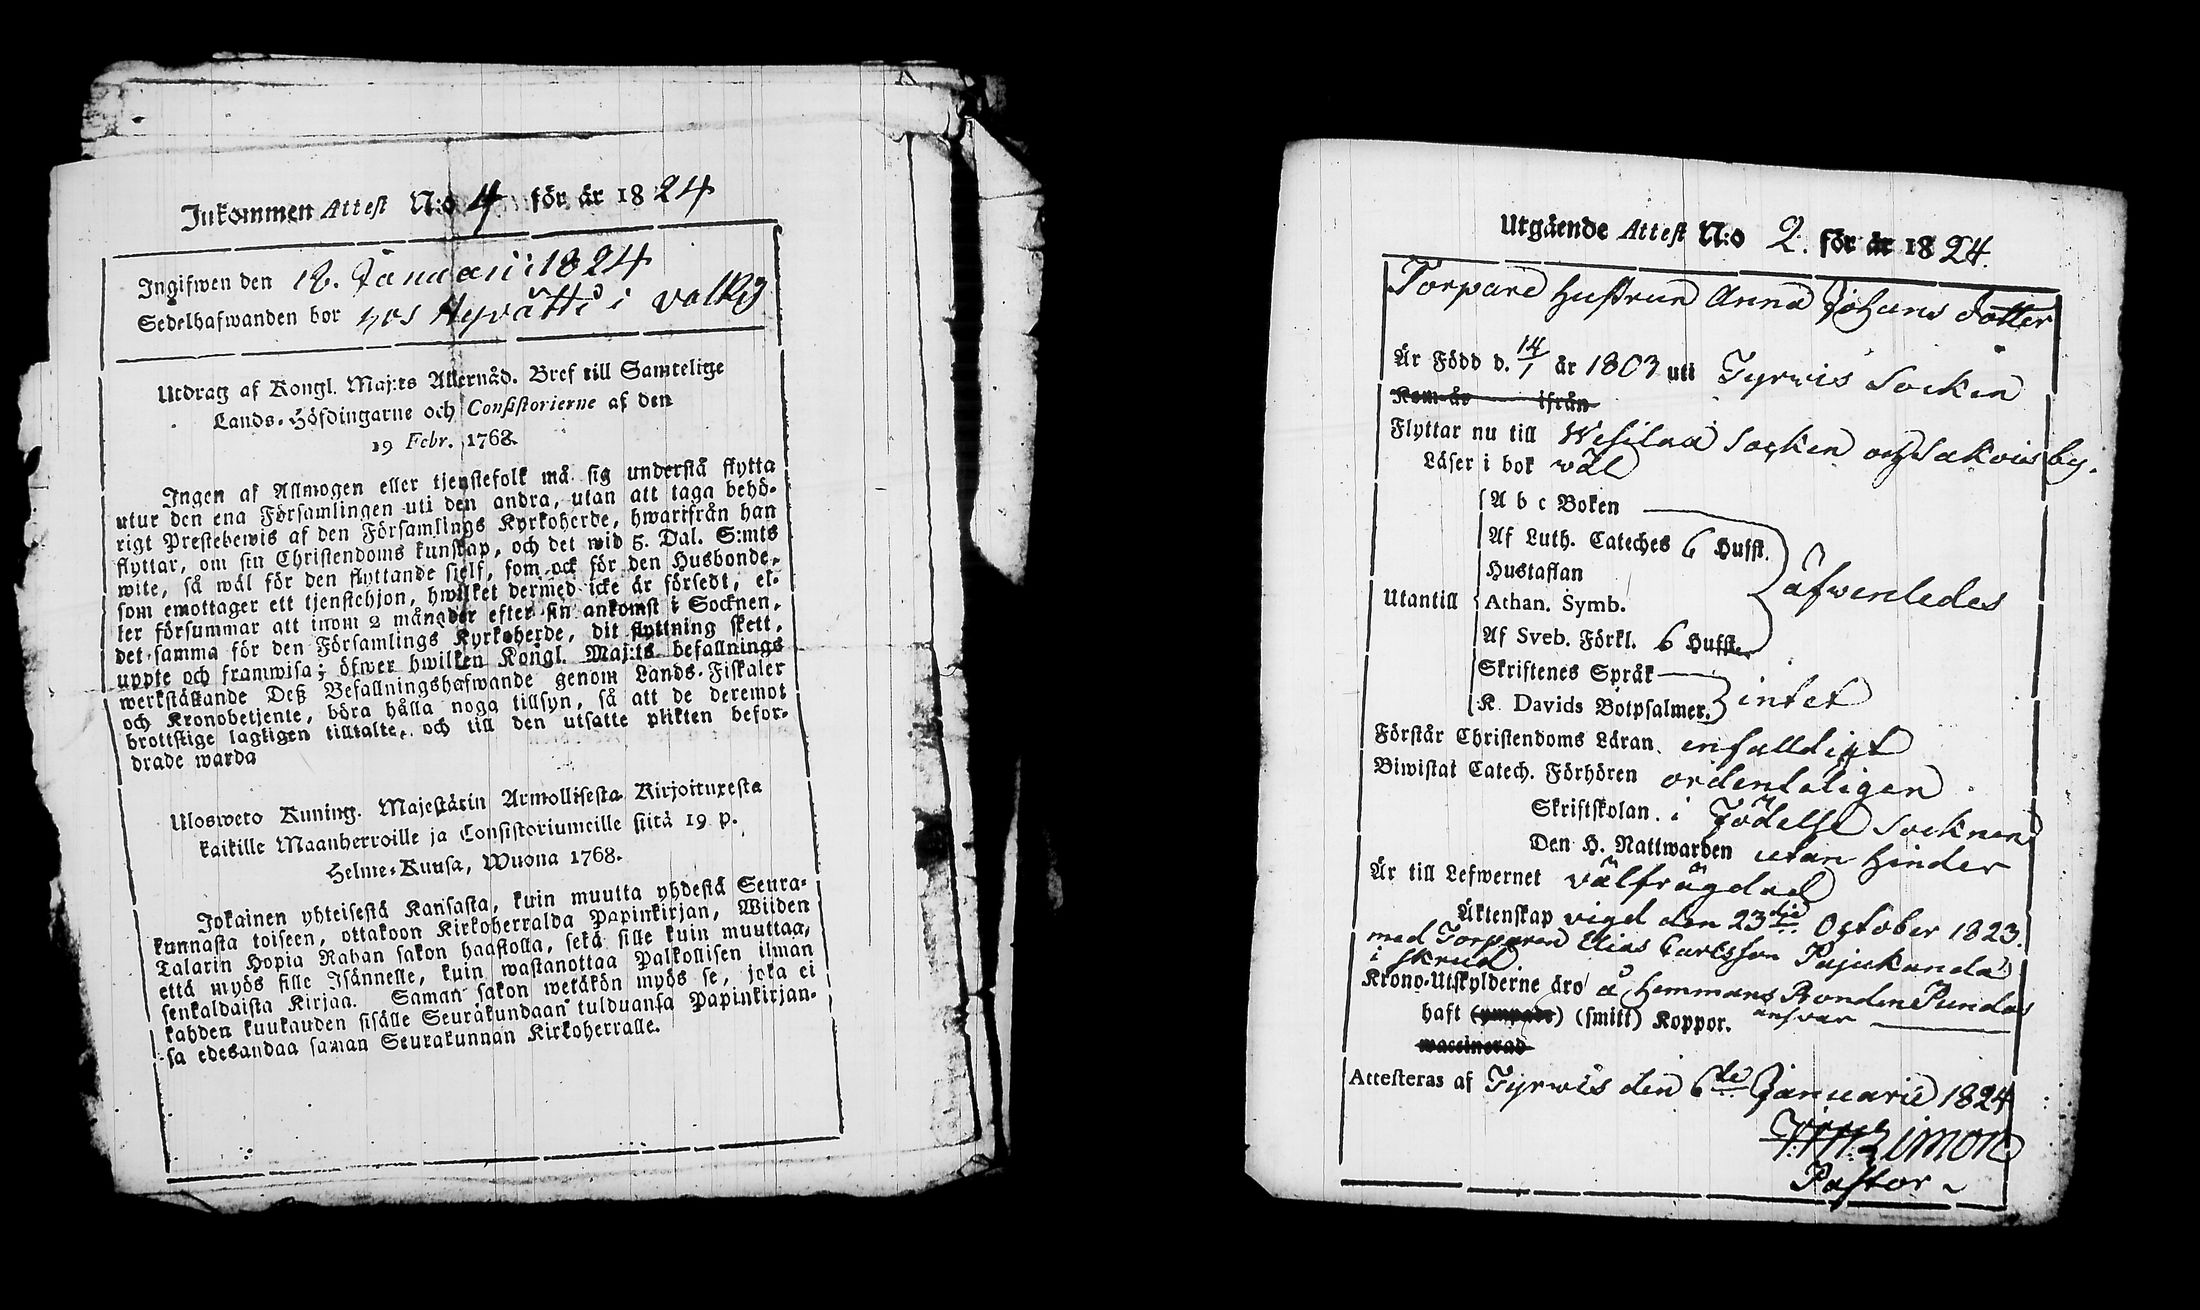 Inkommen Attest N:o 4 för år 1824
Ingifwen den 12. Januarii 1824
Sedelhafwanden bor hos Hyvätti i valkby
Utdrag af Kongl. Maj:ts Allernåd. Bref till Samtelige
Lands-Höfdingarne och Consistorierne af den
19 Febr. 1768.
Ingen af Allmogen eller tjenstefolk må sig understå flytta
utur den ena Församlingen uti den andra, utan att taga behö-
rigt Prestebewis af den Församlings Kyrkoherde, hwarifrån han
flyttar, om sin Christendoms kunskap, och det wid 5. Dal. S:mts
wite, så wäl för den flyttande sjelf, som ock för den Husbonde,
som emottager ett tjenstehjon, hwilket dermed icke är försedt, el-
ler försummar att inom 2 månader efter sin ankomst i Socknen,
det samma för den Församlings Kyrkoherde, dit flyttning skett,
uppte och framwisa; öfwer hwilken Kongl. Maj:ts befallnings
werkställande Deß Befallningshafwande genom Lands-Fiskaler
och Kronobetjente, böra hålla noga tillsyn, så att de deremot
brottslige lagligen tilltalte, och till den utsatte plikten befor-
drade warda
Ulosweto Kuning. Majestätin Armollisesta Kirjoituxesta
kaikille Maanherroille ja Consistoriumeille siitä 19 p.
Helme-Kuusa, Wuona 1768.
Jokainen yhteisestä Kansasta, kuin muutta yhdestä Seura-
kunnasta toiseen, ottakoon Kirkoherralda Papinkirjan, Wiiden
Talarin Hopia Rahan sakon haastolla, sekä sille kuin muuttaa,
että myös sille Isännelle, kuin wastanottaa Palkollisen ilman
senkaldaista Kirjaa. Saman sakon wetäkön myös se, joka ei
kahden kuukauden sisälle Seurakundaan tulduansa Papinkirjan-
sa edesandaa saman Seurakunnan Kirkoherralle.
Utgående Attest N:o 2. för år 1824.
Torpare Hustrun Anna Johans dotter
Är Född d. 14/1 år 1803 uti Tyrwis Socken
Kom år ifrån
Flyttar nu till Wesilax Socken och Sakoisby.
Läser i bok wäl
A b c Boken
Af Luth. Cateches 6 Hufst.
Hustaflan
Utantill Athan. Symb. äfwenledes
Af Sveb. Förkl. 6 Hufst.
Skriftenes Språk
K. Davids Botpsalmer. intet
Förstår Christendoms Läran enfalldigt
Biwistat Catech. Förhören ordenteligen
Skriftskolan i Födelse Socknen
Den H. Nattwarden utan hinder
Är till Lefwernet välfrägdad
Äktenskap vigd den 23die October 1823.
med Torparen Elias Carlsson Pajukanda
i skrud
Krono-Utskylderne äro å Hemmans Bonden Pundas
haft (ympade) (smitt) Koppor. ansvar
waccinerad
Attesteras af Tyrwis den 6te Januarii 1824
Pastor